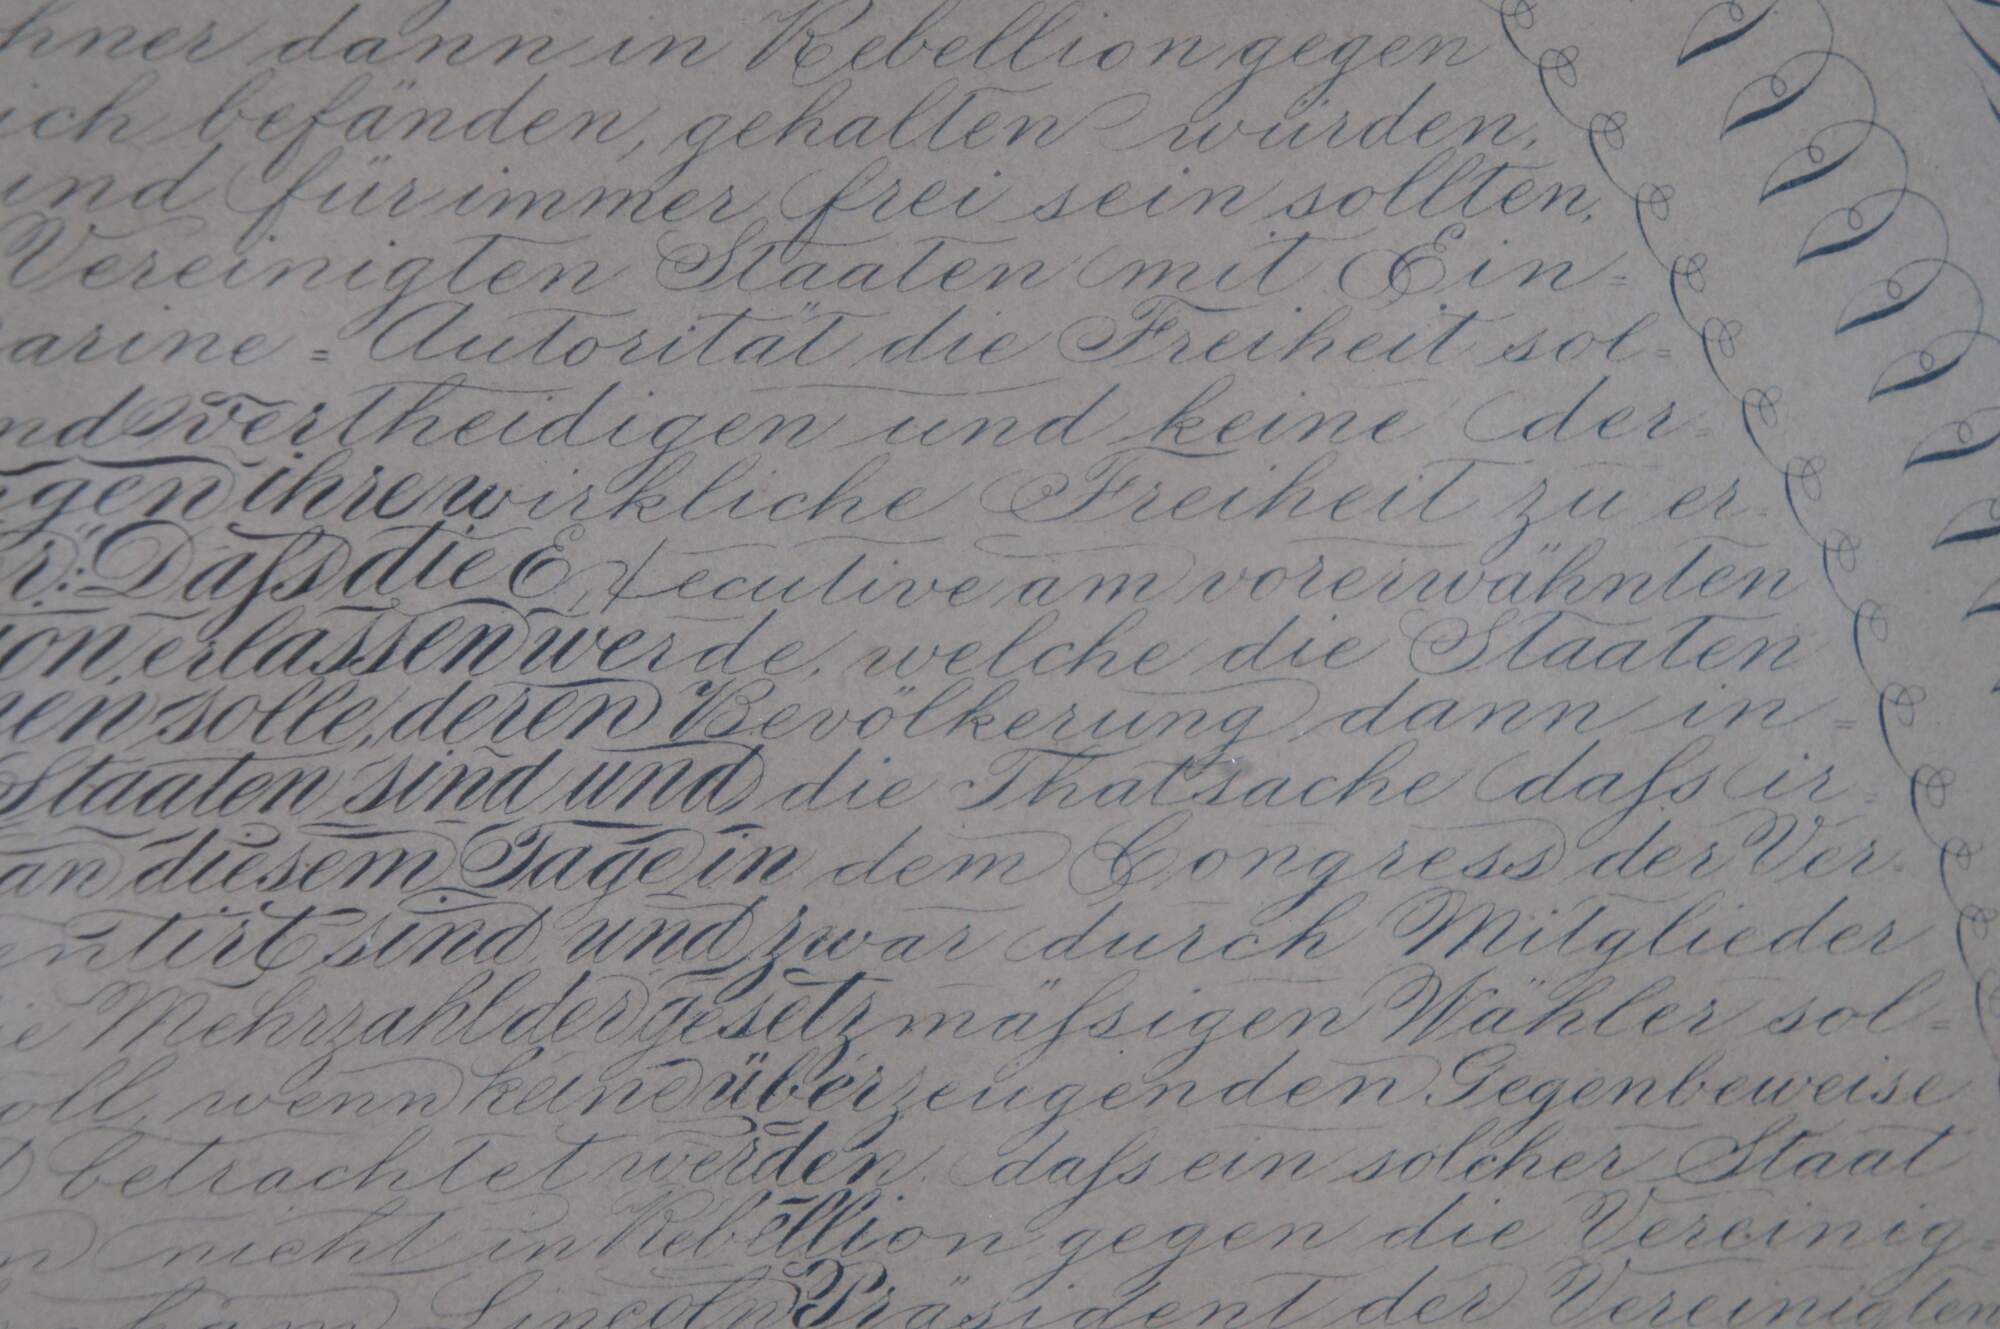 dann in Rebellion gegen
befänden, gehalten würden,
und für immer frei sein sollten,
Vereinigten Staaten mit Ein=
arine = Autorität die Freiheit sol=
vertheidigen und keine der=
ihre wirkliche Freiheit zu er=
Daſs die Executive am vorerwähnten
erlassen werde, welche die Staaten
solle, deren Bevölkerung dann in=
Staaten sind und die Thatsache daſs ir=
an diesem Tage in dem Congress der Ver=
entirt sind und zwar durch Mitglieder
Mehrzahl der gesetzmäſsigen Wähler sol=
wenn keine überzeugenden Gegenbeweise
betrachtet werden, daſs ein solcher Staat
nicht in Rebellion gegen die Vereinig=
Lincoln Präsident der Vereinigten